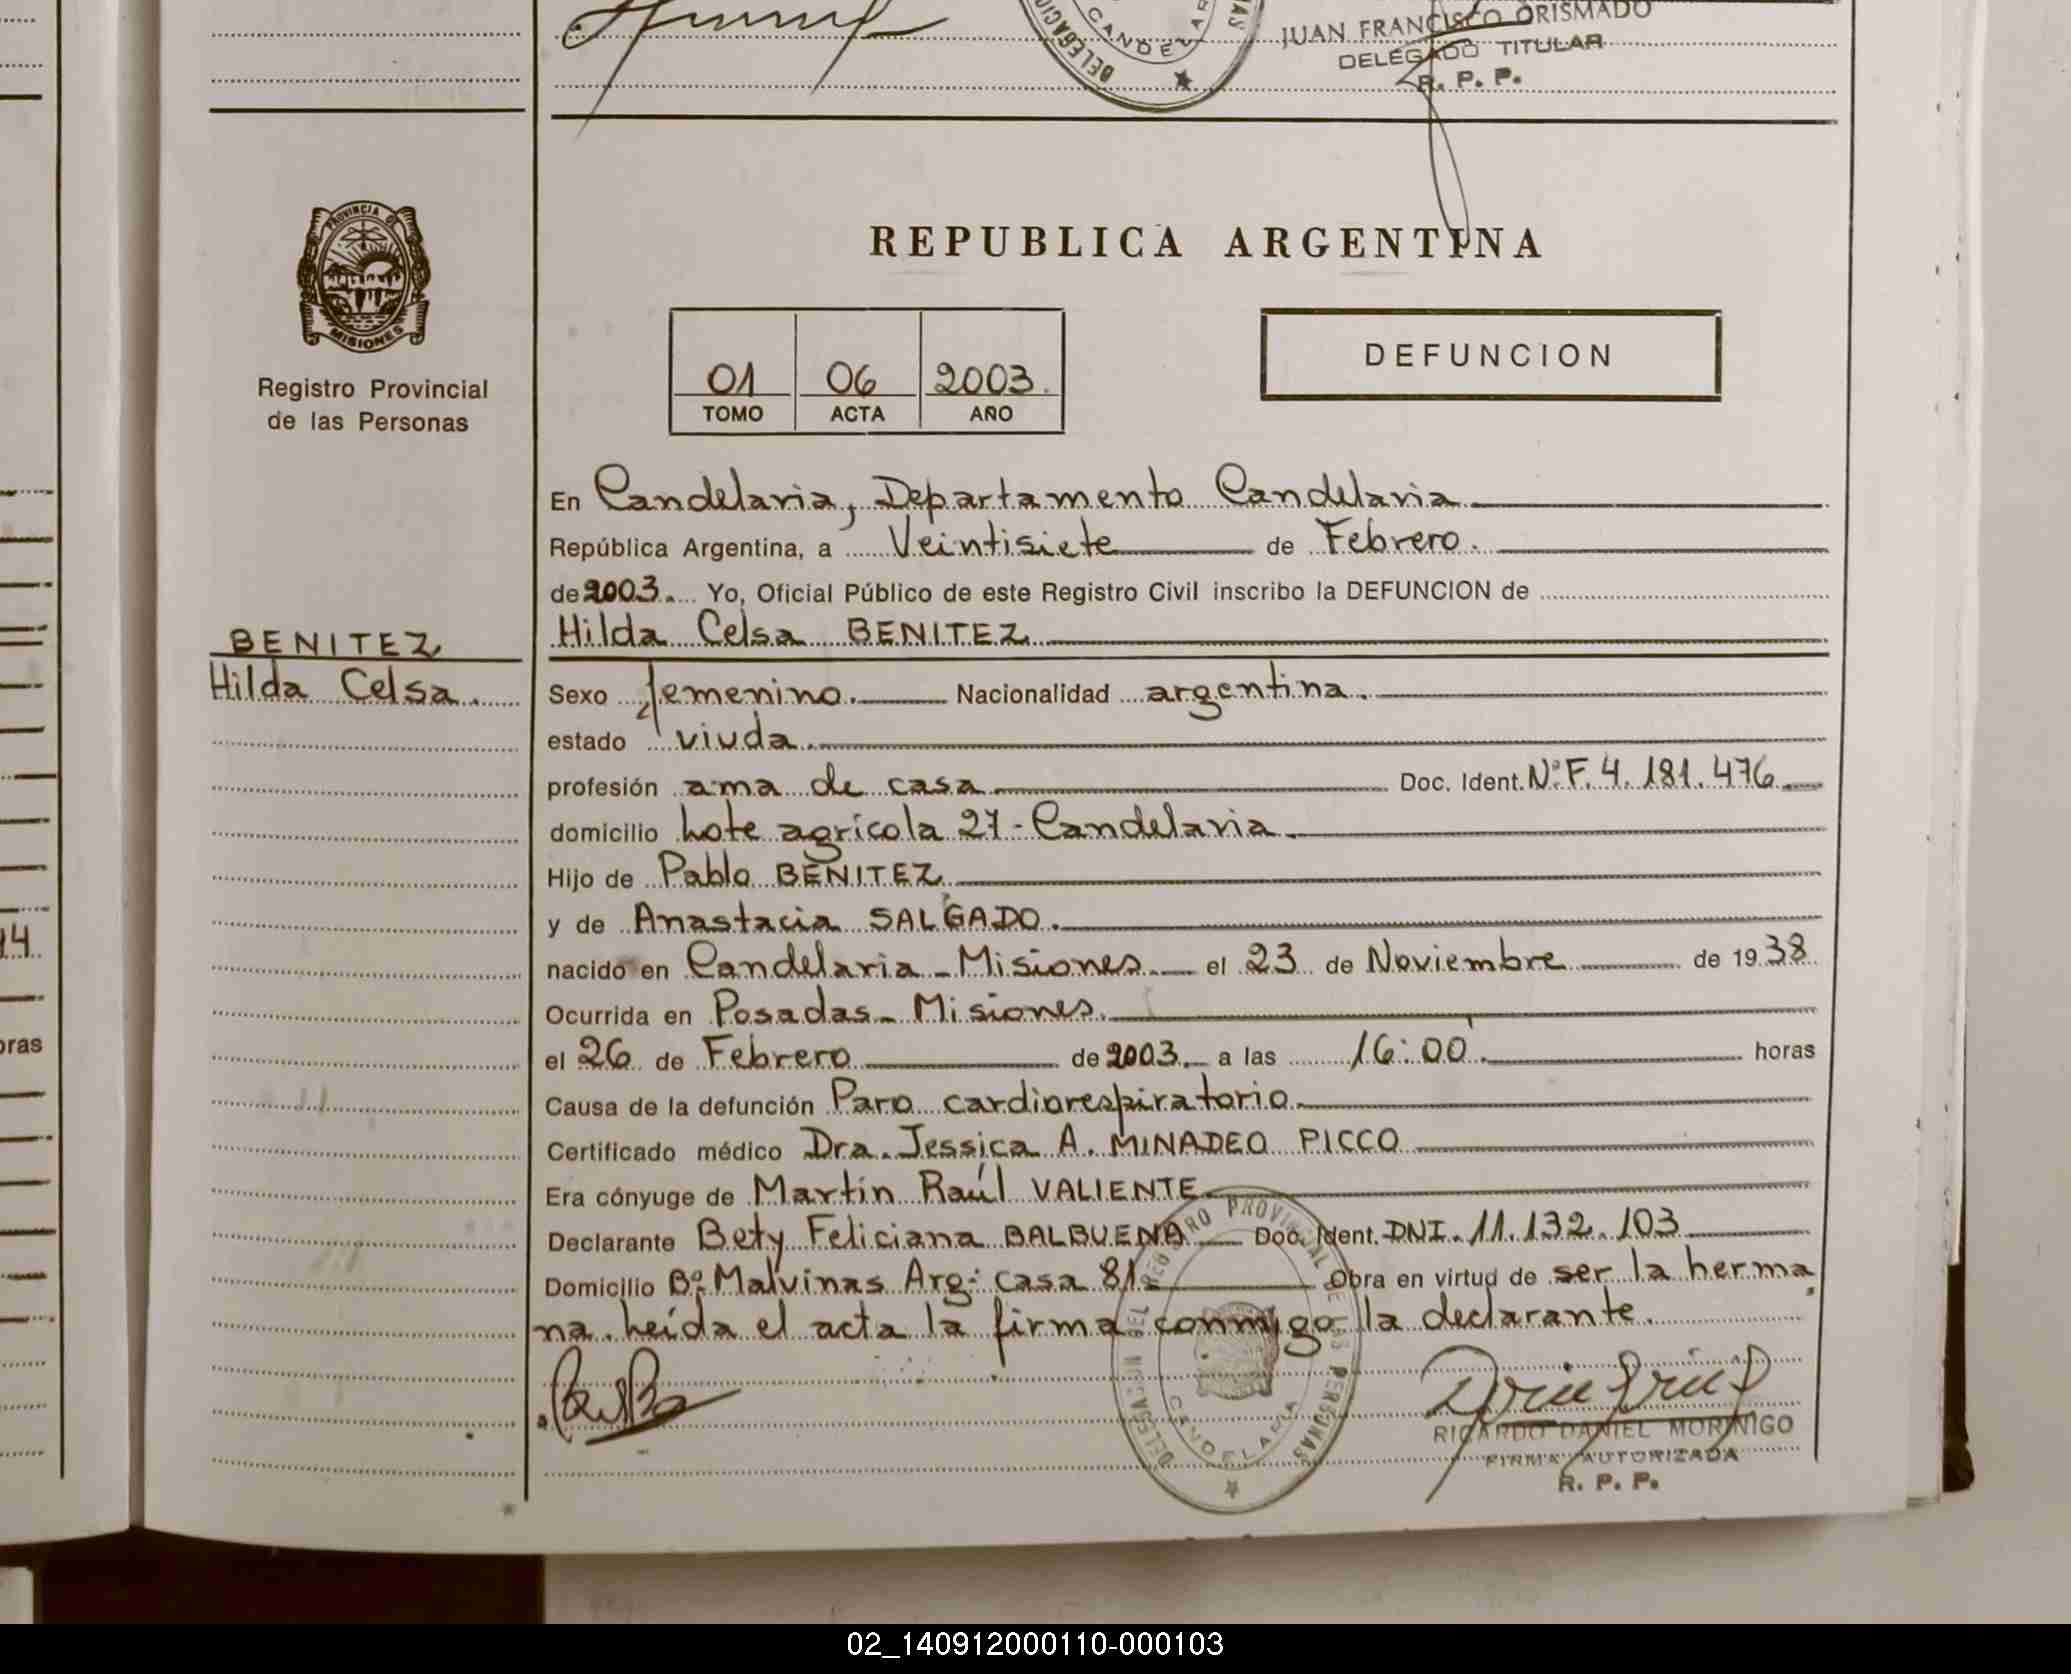 JUAN FRANCISCO ORISMADO
DELEGADO TITULAR
R. P. P.
CANDELAR
PROVINCIA DE
MISIONES
Registro Provincial
de las Personas
REPUBLICA ARGENTINA
01 06 2003.
TOMO ACTA AÑO
DEFUNCION
BENITEZ
Hilda Celsa.
En Candelaria, Departamento Candelaria
República Argentina, a Veintisiete de Febrero.
de 2003. Yo, Oficial Público de este Registro Civil inscribo la DEFUNCION de
Hilda Celsa BENITEZ
Sexo femenino. Nacionalidad argentina.
estado viuda.
profesión ama de casa Doc. Ident. Nº F. 4.181.476
domicilio Lote agrícola 27 - Candelaria.
Hijo de Pablo BENITEZ
y de Anastacia SALGADO.
nacido en Candelaria - Misiones. el 23 de Noviembre de 1938
Ocurrida en Posadas - Misiones.
el 26 de Febrero de 2003. a las 16:00'. horas
Causa de la defunción Paro cardiorespiratorio.
Certificado médico Dra. Jessica A. MINADEO PICCO
Era cónyuge de Martín Raúl VALIENTE
Declarante Bety Feliciana BALBUENA Doc. Ident. DNI. 11.132.103
Domicilio Bº Malvinas Arg: casa 81. Obra en virtud de ser la herma
na. Leída el acta la firma conmigo la declarante.
REGISTRO PROVINCIAL DE LAS PERSONAS
CANDELARIA
RICARDO DANIEL MORINIGO
FIRMA AUTORIZADA
R. P. P.
14
oras
02_140912000110-000103